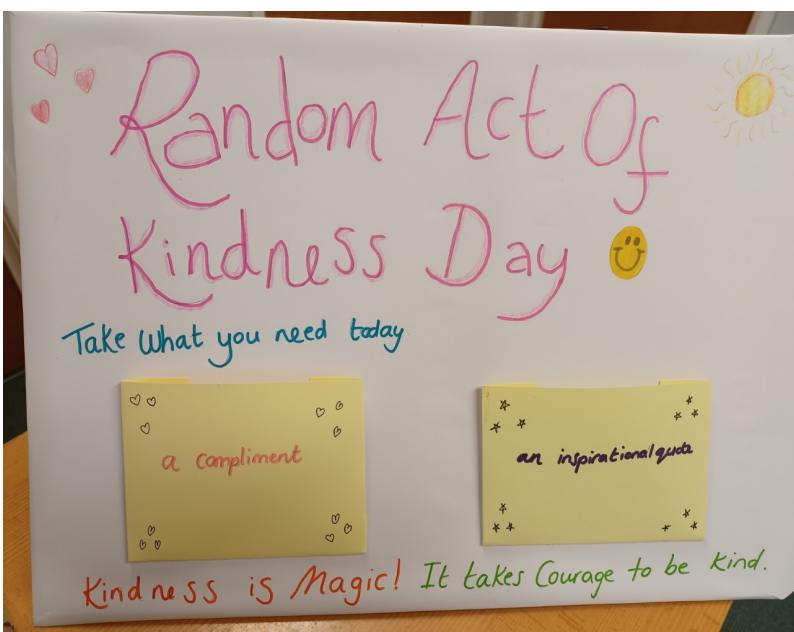 Random Act Of
Kindness Day
Take What you need today
a compliment
an inspirational quote
Kindness is Magic! It takes Courage to be kind.